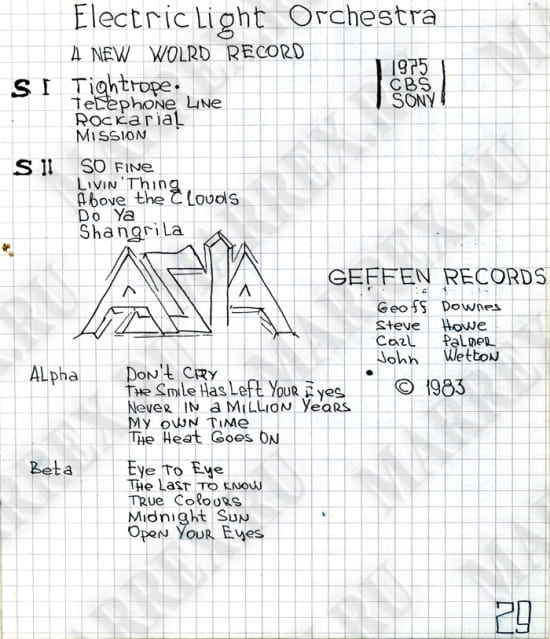 Electric Light Orchestra
A NEW WOLRD RECORD
1975
CBS
SONY
S I Tightrope.
TELEPHONE LINE
Rockarial
MISSION
S II SO FINE
LIVIN' Thing
Above the Clouds
Do Ya
ShangriLa
ASIA
GEFFEN RECORDS
Geoff Downes
Steve Howe
Carl Palmer
John Wetton
© 1983
ALpha DON'T CRY
The Smile Has Left Your Eyes
Never IN a MILLION Years
MY OWN TIME
The Heat Goes ON
Beta Eye To Eye
The Last TO KNOW
TRUE COLOURS
Midnight SUN
OPEN YOUR Eyes
29
MARREX.RU